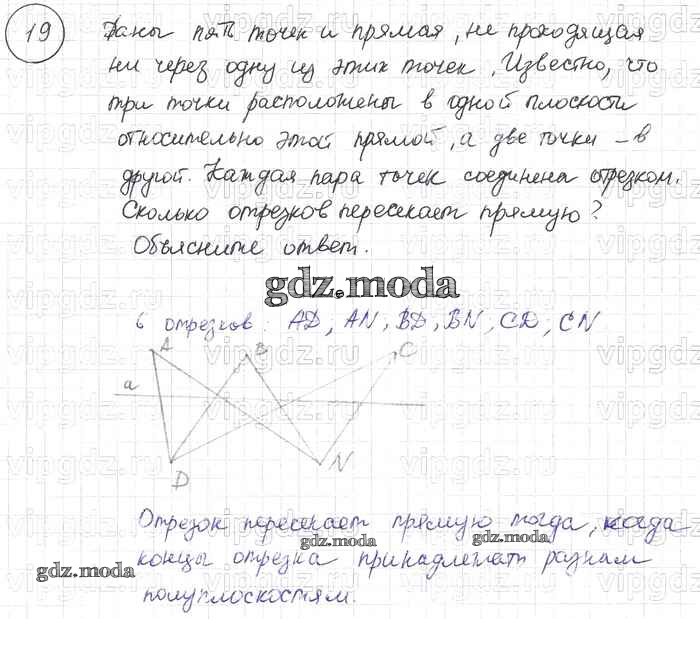 19
Даны пять точек и прямая, не проходящая
ни через одну из этих точек. Известно, что
три точки расположены в одной плоскости
относительно этой прямой, а две точки – в
другой. Каждая пара точек соединена отрезком.
Сколько отрезков пересекает прямую?
Объясните ответ.
gdz.moda
6 отрезков: AD, AN, BD, BN, CD, CN
A B C
a
D N
Отрезок пересекает прямую тогда, когда
gdz.moda gdz.moda
концы отрезка принадлежат разным
gdz.moda
полуплоскостям.
vipgdz.ru